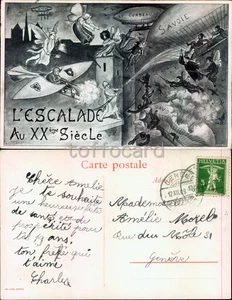 CORBEAU
SAVOIE
L'ESCALADE
AU XXème SIÈCLE
toffocard
Carte postale
HELVETIA
GENÈVE
5
Chère Amélie
je te souhaite
une heureuse fête
de santé et de
prospérité pour
tes 19 ans,
ton frère qui
t'aime
Charles
Mademoiselle
Amélie Morel
Rue du Môle 31
Genève